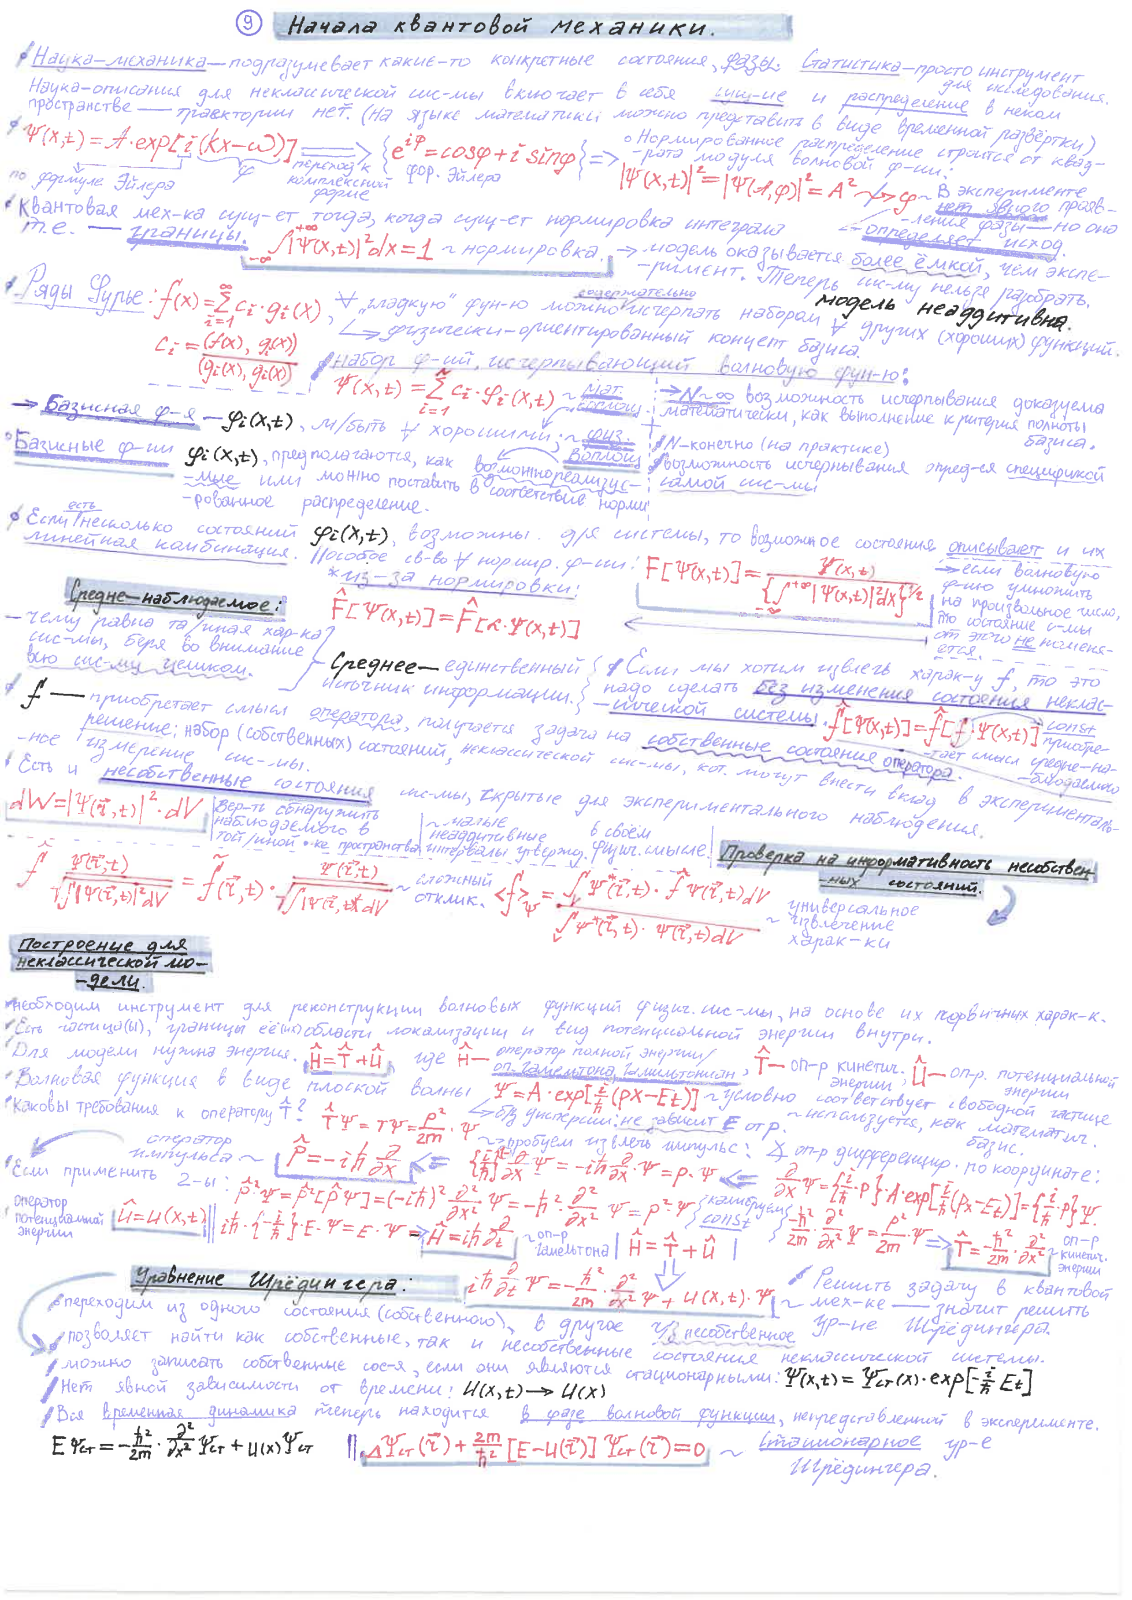 ⑨ Начала квантовой механики.
Наука-механика — подразумевает какие-то конкретные состояния, фазы. Статистика — просто инструмент для исследования.
Наука-описания для неклассической сис-мы включает в себя сущ-ие и распределение в неком
пространстве — траектории нет. (На языке математики можно представить в виде временной развёртки)
Ψ(x,t) = A·exp[i(kx-ω)] => {e^{iφ} = cosφ + i sinφ} =>
φ
по формуле Эйлера
переход к комплексной форме
фор. Эйлера
Нормированное распределение строится от квад-
-рата модуля волновой ф-ии:
|Ψ(x,t)|² = |Ψ(A,φ)|² = A² ~> φ ~ В эксперименте
нет явного прояв-
-ления фазы — но она
определяет исход.
Квантовая мех-ка сущ-ет тогда, когда сущ-ет нормировка интеграла
т.е. — границы. ∫_{-∞}^{+∞} |Ψ(x,t)|² dx = 1 ~ нормировка. → модель оказывается более ёмкой, чем экспе-
-римент. Теперь сис-му нельзя разобрать.
модель неаддитивна.
Ряды Фурье: f(x) = Σ_{i=1}^{∞} c_i·g_i(x), ∀ "гладкую" фун-ю можно содержательно исчерпать набором ∀ других (хороших) функций.
↳ физически-ориентированный концепт базиса.
c_i = (f(x), g_i(x)) / (g_i(x), g_i(x))
набор ф-ий, исчерпывающий волновую фун-ю:
Ψ(x,t) = Σ_{i=1}^{N} c_i·φ_i(x,t) ~ мат. воплощ.
→ N~∞ возможность исчерпывания доказуема
математически, как выполнение критерия полноты
базиса.
→ Базисная ф-я — φ_i(x,t), м/быть ∀ хорошими; ~ физ. воплощ
N-конечно (на практике)
возможность исчерпывания опред-ся спецификой
самой сис-мы
Базисные ф-ии φ_i(x,t), предполагаются, как возможнореализус-
-мые или можно поставить в соответствие норми
-рованное распределение.
Если есть несколько состояний φ_i(x,t), возможны для системы, то возможное состояния описывает и их
линейная комбинация. // особое св-во ∀ нормир. ф-ии:
*из-за нормировки:
F[Ψ(x,t)] = Ψ(x,t) / {∫_{-∞}^{+∞} |Ψ(x,t)|² dx}^{1/2}
→ если волновую
ф-ию умножить
на произвольное число,
то состояние с-мы
от этого не изменя-
ется.
F̂[Ψ(x,t)] = F̂[α·Ψ(x,t)]
Средне-наблюдаемое:
— чему равна та/иная хар-ка
сис-мы, беря во внимание
всю сис-му целиком.
Среднее — единственный
источник информации.
Если мы хотим извлечь харак-у f, то это
надо сделать без изменения состояния неклас-
-сической системы. f̂[Ψ(x,t)] = f̂[f·Ψ(x,t)]
const
приобре-
-тает смысл средне-на-
-блюдаемого
f̂ — приобретает смысл оператора, получается задача на собственные состояния оператора.
решение: набор (собственных) состояний, неклассической сис-мы, кот. могут внести вклад в эксперименталь-
-ное измерение сис-мы.
Есть и несобственные состояния сис-мы, скрытые для экспериментального наблюдения.
dW = |Ψ(r⃗,t)|²·dV
Вер-ть обнаружить
наблюдаемого в
той/иной •-ке пространства
~ малые
неаддитивные
интервалы утвержд.
в своём
физич. смысле.
Проверка на информативность несобствен-
-ных состояний.
f̂ Ψ(r⃗,t) / √∫|Ψ(r⃗,t)|²dV = f̃(r⃗,t)· Ψ(r⃗,t) / √∫|Ψ(r⃗,t)|²dV ~ сложный отклик. <f>_Ψ = ∫_V Ψ*(r⃗,t)·f̂Ψ(r⃗,t)dV / ∫_V Ψ*(r⃗,t)·Ψ(r⃗,t)dV ~
универсальное
извлечение
харак-ки
Построение для
неклассической мо-
-дели.
необходим инструмент для реконструкции волновых функций физич. сис-мы, на основе их первичных харак-к.
Есть частица(ы), границы её(их) области локализации и вид потенциальной энергии внутри.
Для модели нужна энергия. Ĥ = T̂ + Û, где Ĥ — оператор полной энергии/ оп. Гамильтона, Гамильтониан, T̂ — оп-р кинетич. энергии, Û — опр. потенциальной энергии
Волновая функция в виде плоской волны Ψ = A·exp[i/ħ(px-Et)] ~ условно соответствует свободной частице
↳ б/з дисперсии: не зависит E от p.
~ используется, как математич.
базис.
Каковы требования к оператору T̂? T̂Ψ = TΨ = p²/2m · Ψ
~> пробуем извлечь импульс: ∡ оп-р дифференцир. по координате:
оператор
импульса ~ p̂ = -iħ ∂/∂x <= {ħ/i} ∂/∂x Ψ = -iħ ∂/∂x·Ψ = p·Ψ <= ∂/∂x Ψ = {i/ħ·p}·A·exp[i/ħ(px-Et)] = {i/ħ·p}Ψ.
Если применить 2-ы: p̂²·Ψ = p̂·[p̂Ψ] = (-iħ)² ∂²/∂x² Ψ = -ħ²·∂²/∂x² Ψ = p²·Ψ {калибруем const} -ħ²/2m · ∂²/∂x² Ψ = p²/2m·Ψ => T̂ = -ħ²/2m·∂²/∂x² ~ оп-р кинетич. энергии
оператор
потенциальной
энергии
Û = U(x,t) || iħ·{-i/ħ}·E·Ψ = E·Ψ => Ĥ = iħ ∂/∂t ~ оп-р Гамильтона | Ĥ = T̂ + Û |
Уравнение Шрёдингера: iħ ∂/∂t Ψ = -ħ²/2m · ∂²/∂x² Ψ + U(x,t)·Ψ ~
Решить задачу в квантовой
мех-ке — значит решить
ур-ие Шрёдингера.
переходим из одного состояния (собственного), в другое ч/з несобственное
позволяет найти как собственные, так и несобственные состояния неклассической системы.
можно записать собственные сос-я, если они являются стационарными: Ψ(x,t) = Ψ_ст(x)·exp[-i/ħ Et]
Нет явной зависимости от времени: U(x,t) → U(x)
Вся временная динамика теперь находится в фазе волновой функции, непредставленной в эксперименте.
EΨ_ст = -ħ²/2m · ∂²/∂x² Ψ_ст + U(x)Ψ_ст || ΔΨ_ст(r⃗) + 2m/ħ² [E-U(r⃗)] Ψ_ст(r⃗) = 0 ~ Стационарное ур-е
Шрёдингера.